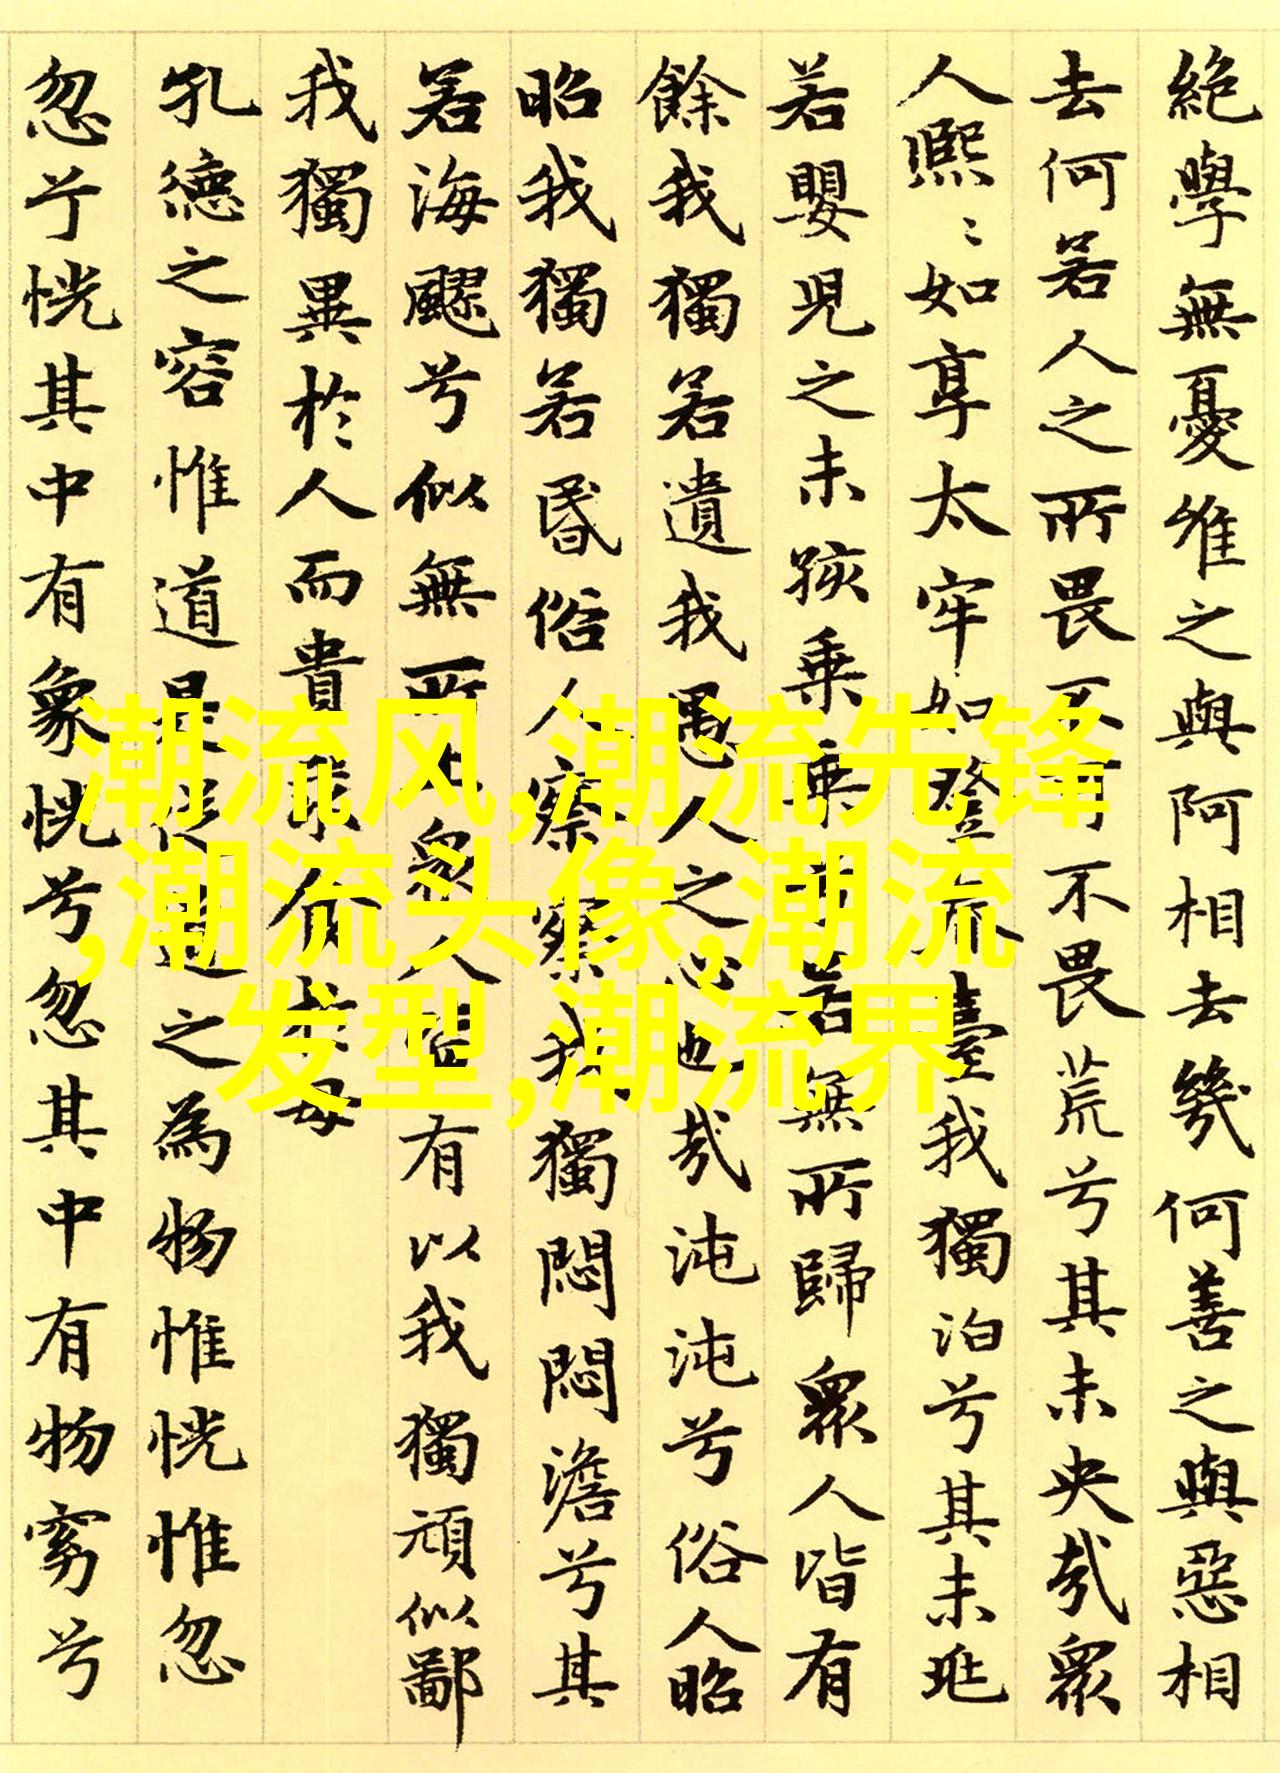 絶學無憂唯之與阿相去幾何善之與惡相
去何若人之所畏不可不畏荒兮其未央哉眾
人熙〻如享太牢如登春臺我獨泊兮其未兆
若嬰兒之未孩乗乗兮若無所歸眾人皆有
餘我獨若遺我愚人之心也哉沌沌兮俗人昭
昭我獨若昏俗人察察我獨悶悶澹兮其
若海飂兮似無所止眾人皆有以我獨頑似鄙
我獨異於人而貴求食於母
孔德之容惟道是從道之為物惟恍惟忽
忽兮恍其中有象恍兮忽其中有物窈兮
潮流风,潮流先锋
,潮流头像,潮流
发型,潮流界